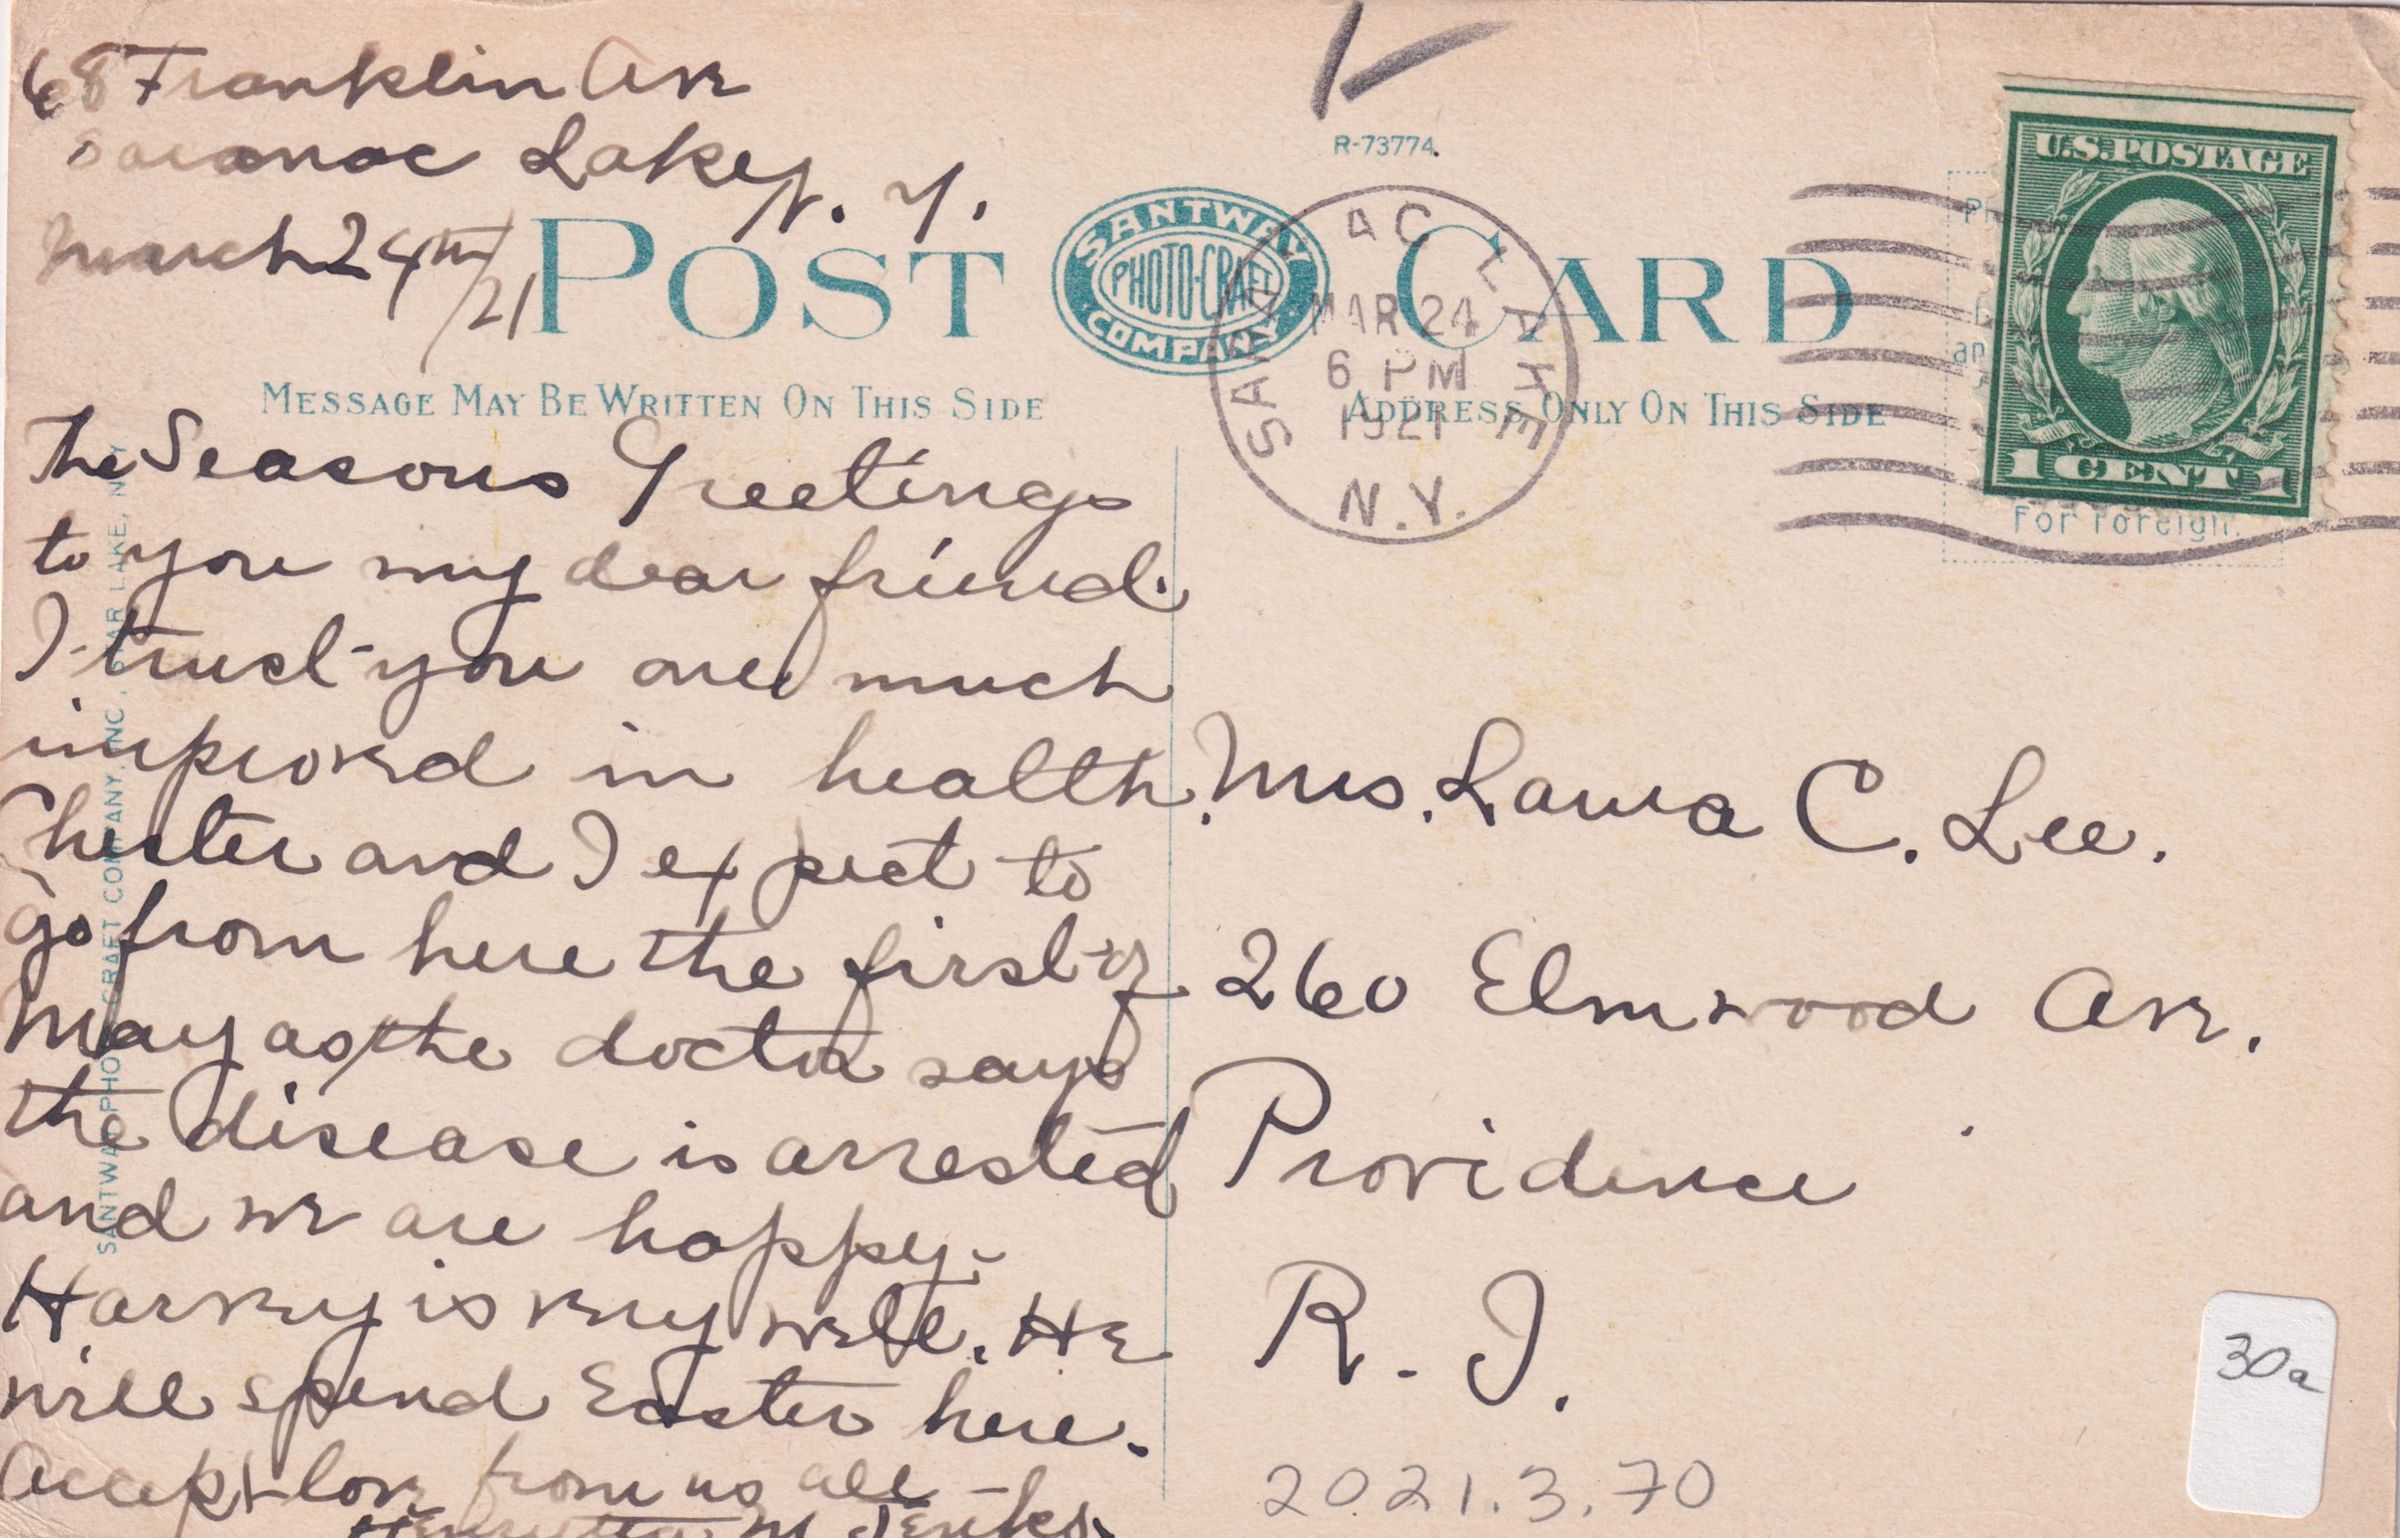 68 Franklin Ave
Saranac Lake, N. Y.
March 24th/21
R-73774
POST CARD
SANTWAY
PHOTO-CRAFT
COMPANY
MESSAGE MAY BE WRITTEN ON THIS SIDE
ADDRESS ONLY ON THIS SIDE
SARANAC LAKE
MAR 24
6 PM
1921
N.Y.
U.S. POSTAGE
1 CENT 1
For Foreign.
The Seasons Greetings
to you my dear friend.
I trust you are much
improved in health.
Chester and I expect to
go from here the first of
May as the doctor says
the disease is arrested
and we are happy.
Harvey is very well. He
will spend Easter here.
Accept love from us all -
Henrietta M. Jenks.
Mrs. Laura C. Lee.
260 Elmwood Ave.
Providence
R. I.
2021.3.70
30a
SANTWAY PHOTO-CRAFT COMPANY, INC., STAR LAKE, N.Y.